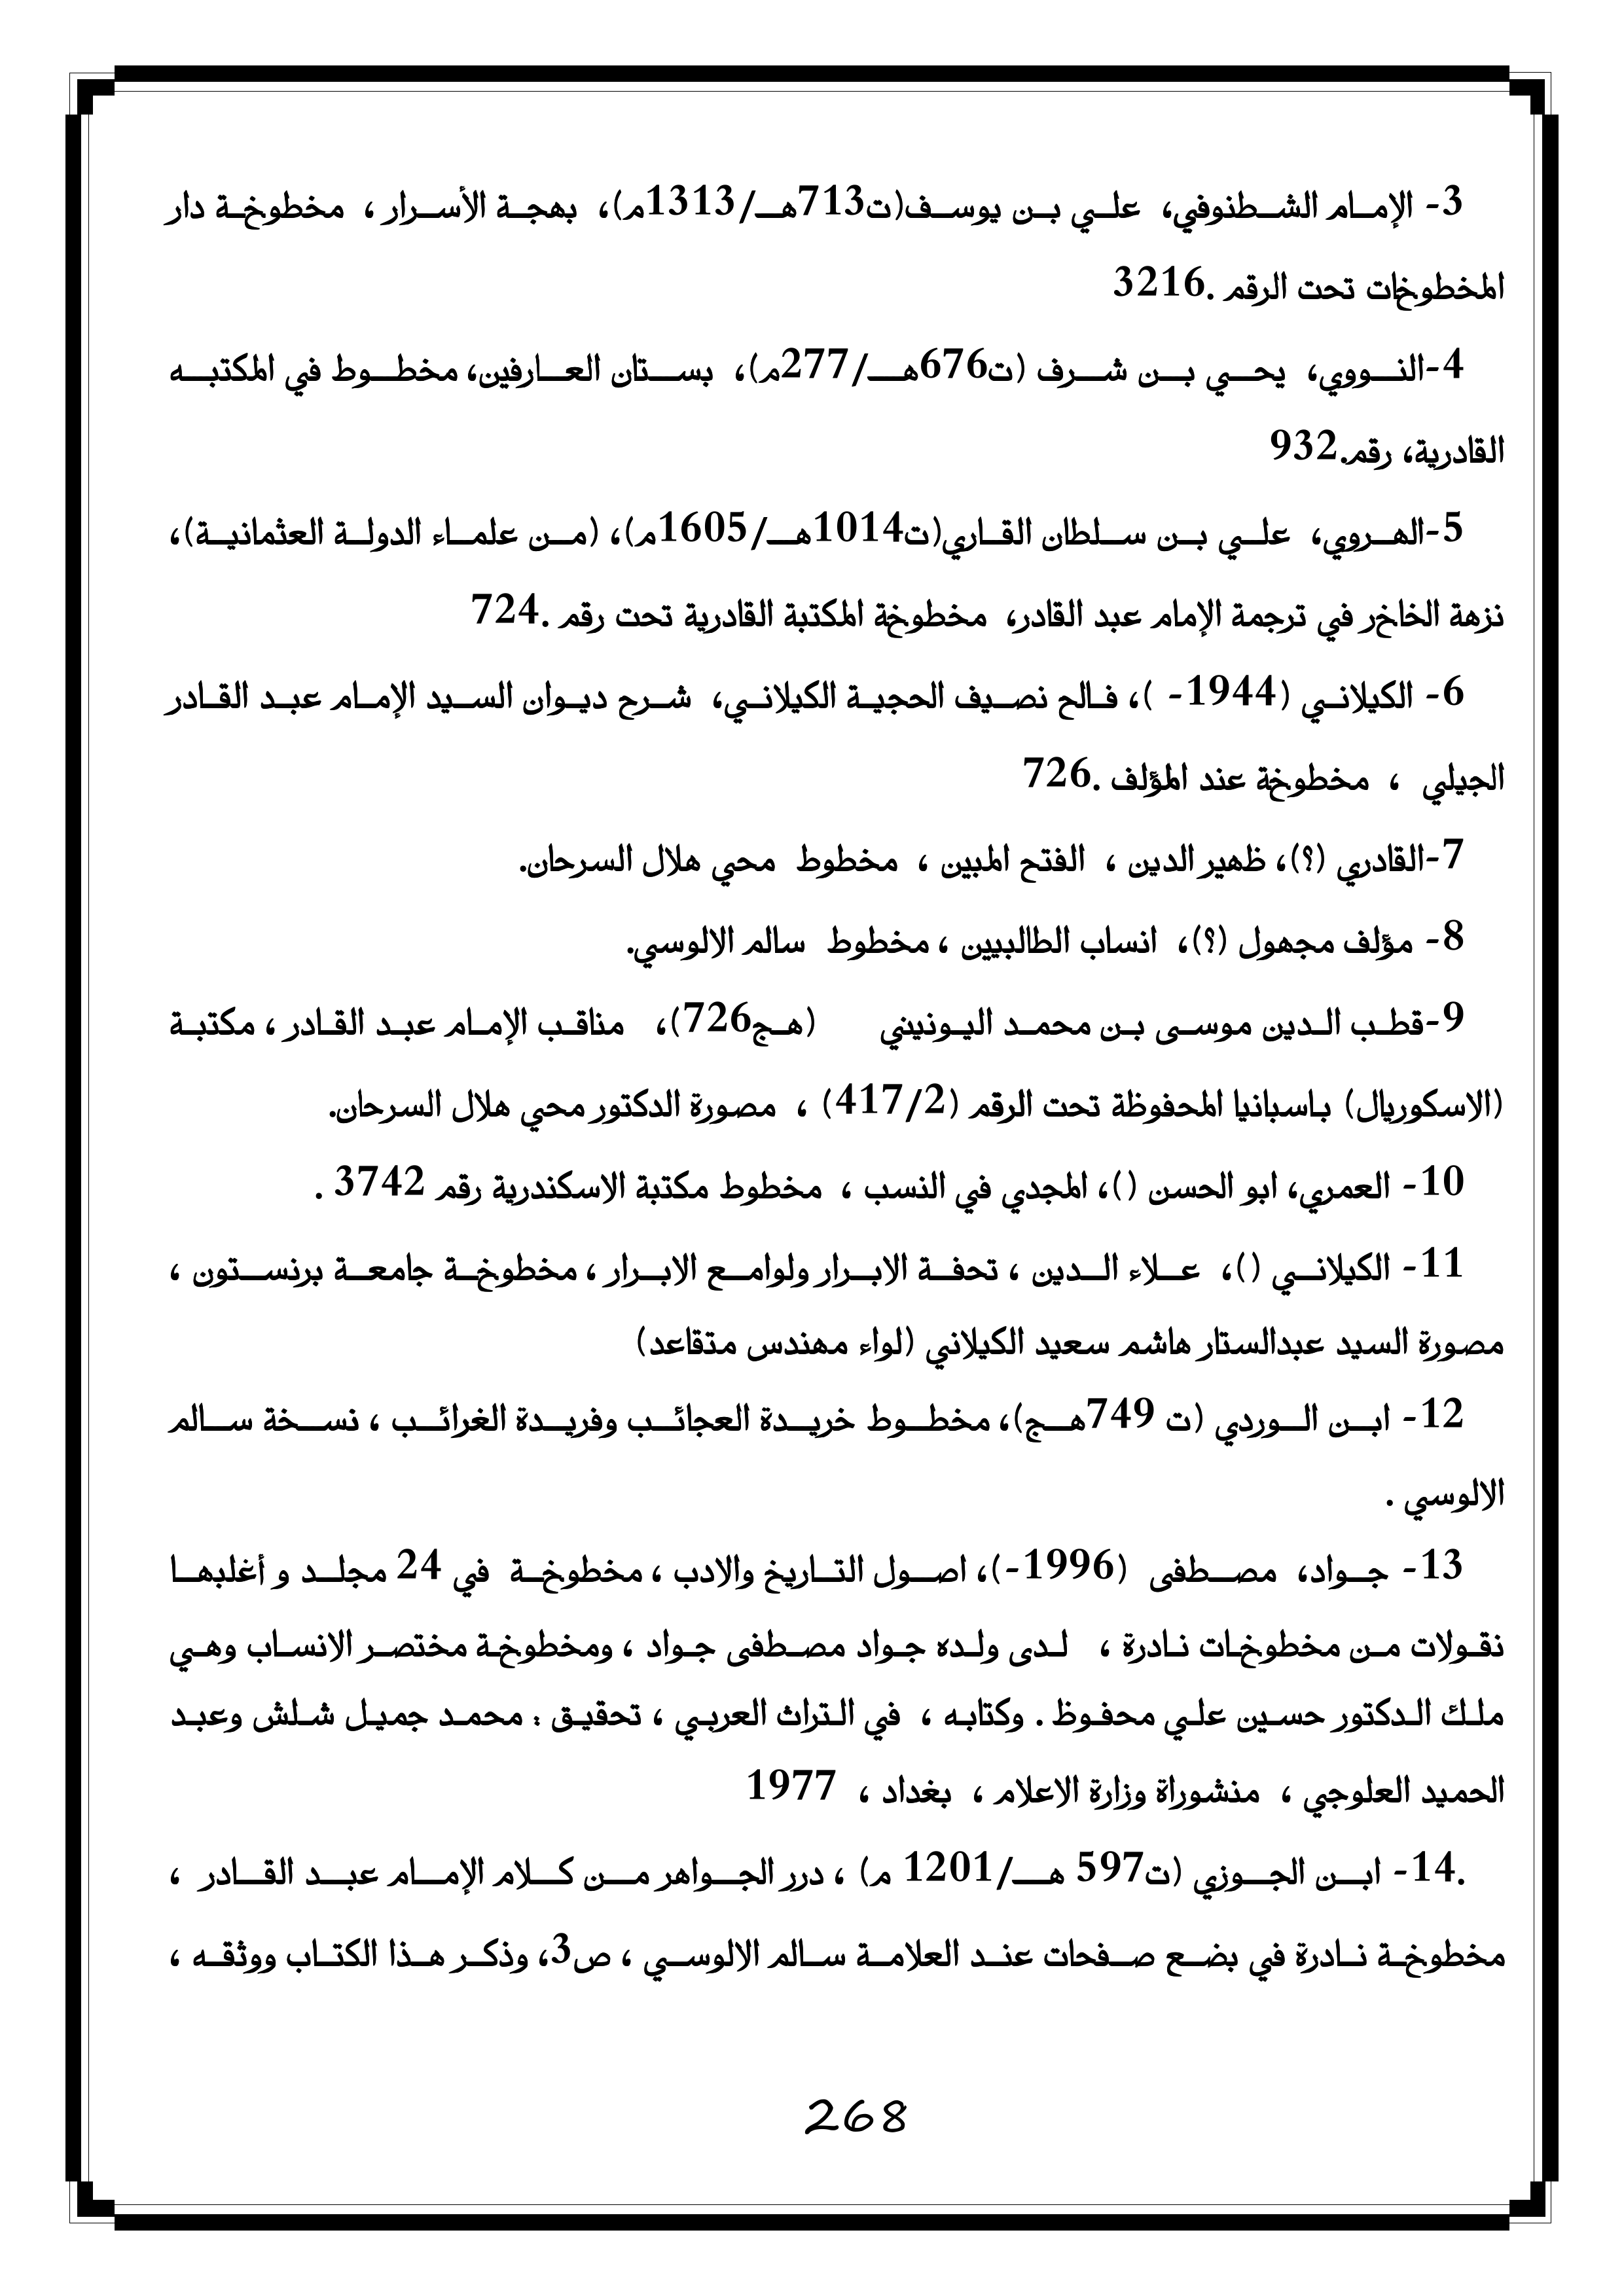 3- الإمام الشطنوفي، علي بن يوسف(ت713هـ/1313م)، بهجة الأسرار ، مخطوخة دار
المخطوخات تحت الرقم .3216
4-النووي، يحي بن شرف (ت676هـ/277م)، بستان العارفين، مخطوط في المكتبه
القادرية، رقم.932
5-الهروي، علي بن سلطان القاري(ت1014هـ/1605م)، (من علماء الدولة العثمانية)،
نزهة الخاخر في ترجمة الإمام عبد القادر، مخطوخة المكتبة القادرية تحت رقم .724
6- الكيلاني (1944- )، فالح نصيف الحجية الكيلاني، شرح ديوان السيد الإمام عبد القادر
الجيلي ، مخطوخة عند المؤلف .726
7-القادري (؟)، ظهير الدين ، الفتح المبين ، مخطوط محي هلال السرحان.
8- مؤلف مجهول (؟)، انساب الطالبيين ، مخطوط سالم الالوسي.
9-قطب الدين موسى بن محمد اليونيني (هج726)، مناقب الإمام عبد القادر ، مكتبة
(الاسكوريال) باسبانيا المحفوظة تحت الرقم (417/2) ، مصورة الدكتور محي هلال السرحان.
10- العمري، ابو الحسن ()، المجدي في النسب ، مخطوط مكتبة الاسكندرية رقم 3742 .
11- الكيلاني ()، علاء الدين ، تحفة الابرار ولوامع الابرار ، مخطوخة جامعة برنستون ،
مصورة السيد عبدالستار هاشم سعيد الكيلاني (لواء مهندس متقاعد)
12- ابن الوردي (ت 749هج)، مخطوط خريدة العجائب وفريدة الغرائب ، نسخة سالم
الالوسي .
13- جواد، مصطفى (1996-)، اصول التاريخ والادب ، مخطوخة في 24 مجلد و أغلبها
نقولات من مخطوخات نادرة ، لدى ولده جواد مصطفى جواد ، ومخطوخة مختصر الانساب وهي
ملك الدكتور حسين علي محفوظ . وكتابه ، في التراث العربي ، تحقيق : محمد جميل شلش وعبد
الحميد العلوجي ، منشوراة وزارة الاعلام ، بغداد ، 1977
.14- ابن الجوزي (ت597 هـ/1201 م) ، درر الجواهر من كلام الإمام عبد القادر ،
مخطوخة نادرة في بضع صفحات عند العلامة سالم الالوسي ، ص3، وذكر هذا الكتاب ووثقه ،
268